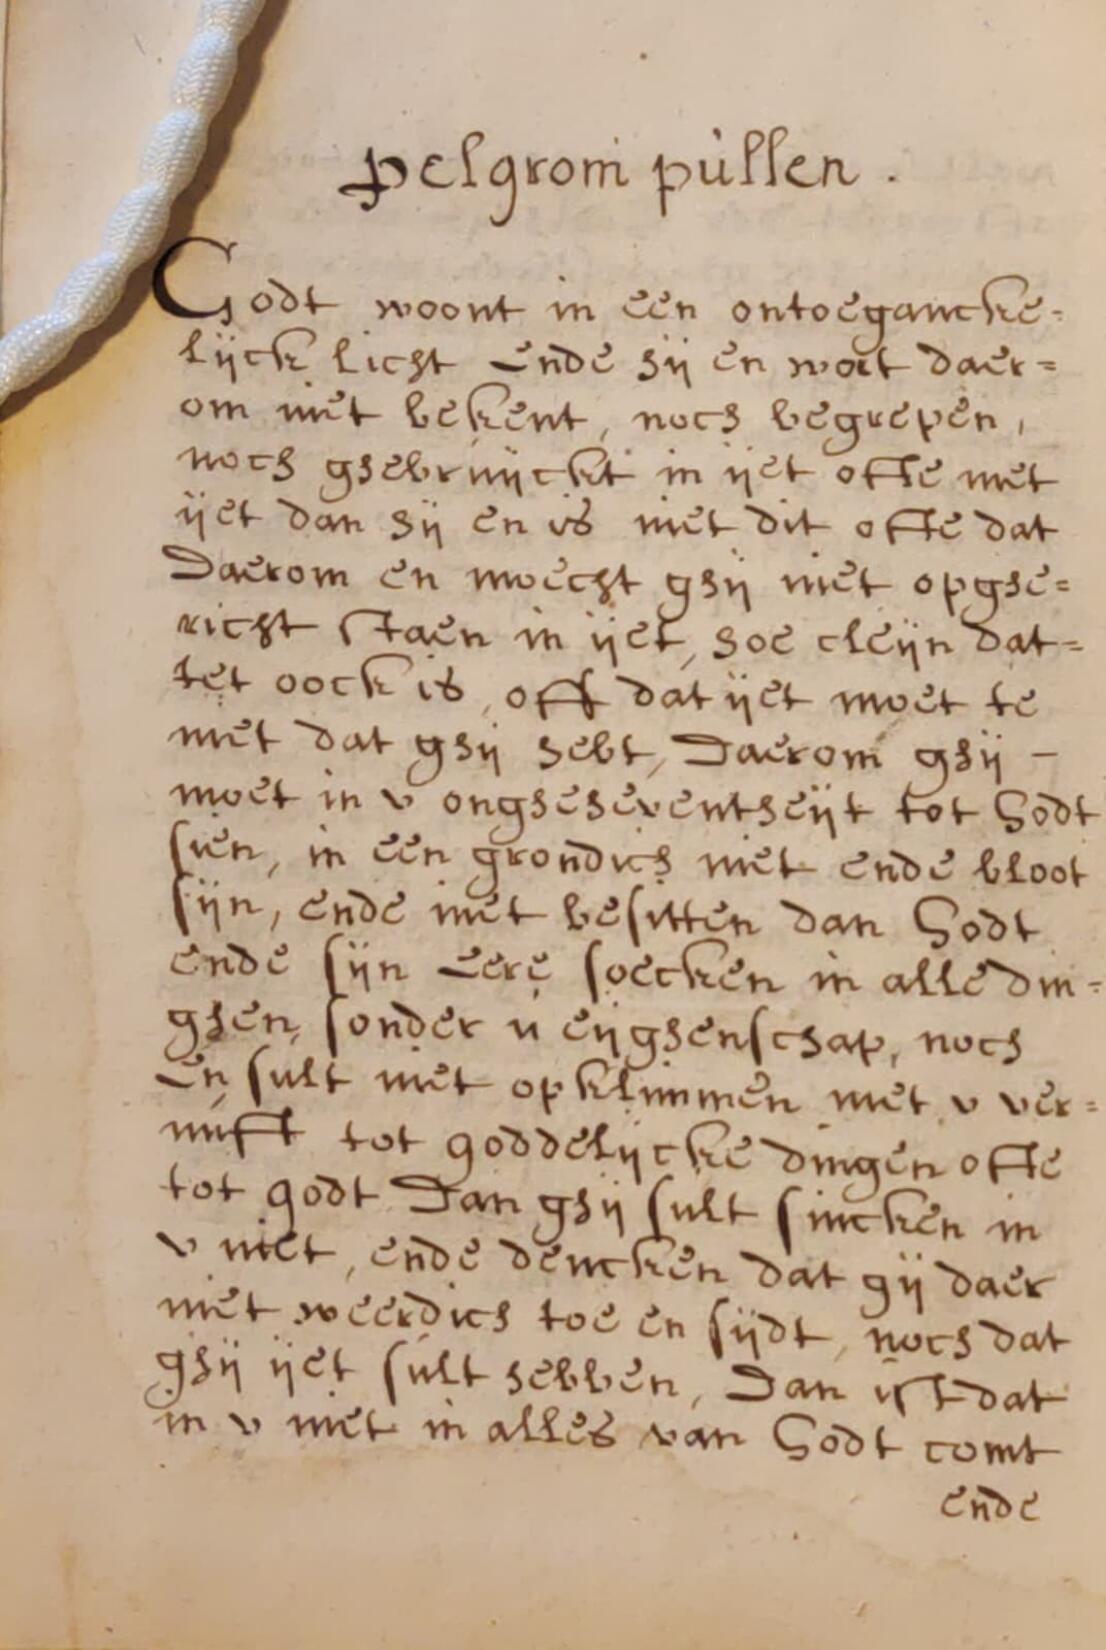 pelgrom pullen .
Godt woont in een ontoegancke=
lijck licht ende hij en wort daer=
om niet bekent, noch begrepen,
noch ghebruijckt in ijet ofte met
ijet dan hij en is niet dit ofte dat
Daerom en moecht ghij niet opghe=
richt staen in ijet, hoe cleijn dat=
tet oock is, off dat ijet moet te
niet dat ghij hebt, Daerom ghij –
moet in v ongheheventheijt tot Godt
sien, in een grondich niet ende bloot
sijn, ende niet besitten dan Godt
ende sijn eere soecken in alle din=
ghen, sonder u eijghenschap, noch
en sult niet opklimmen met v ver=
nuft tot goddelijcke dingen ofte
tot godt Dan ghij sult sincken in
v niet, ende dencken dat gij daer
niet weerdich toe en sijdt, noch dat
ghij ijet sult hebben, Dan ist dat
in v niet in alles van Godt comt
ende